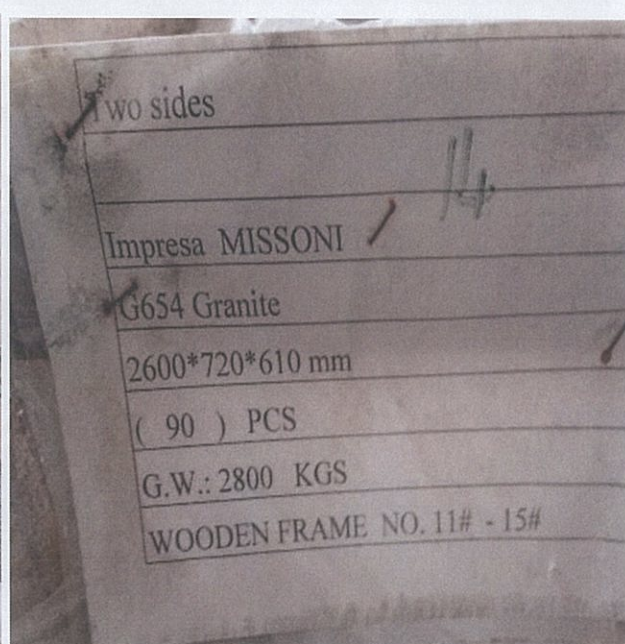 Two sides
14
Impresa MISSONI
G654 Granite
2600*720*610 mm
( 90 ) PCS
G.W.: 2800 KGS
WOODEN FRAME NO. 11# - 15#